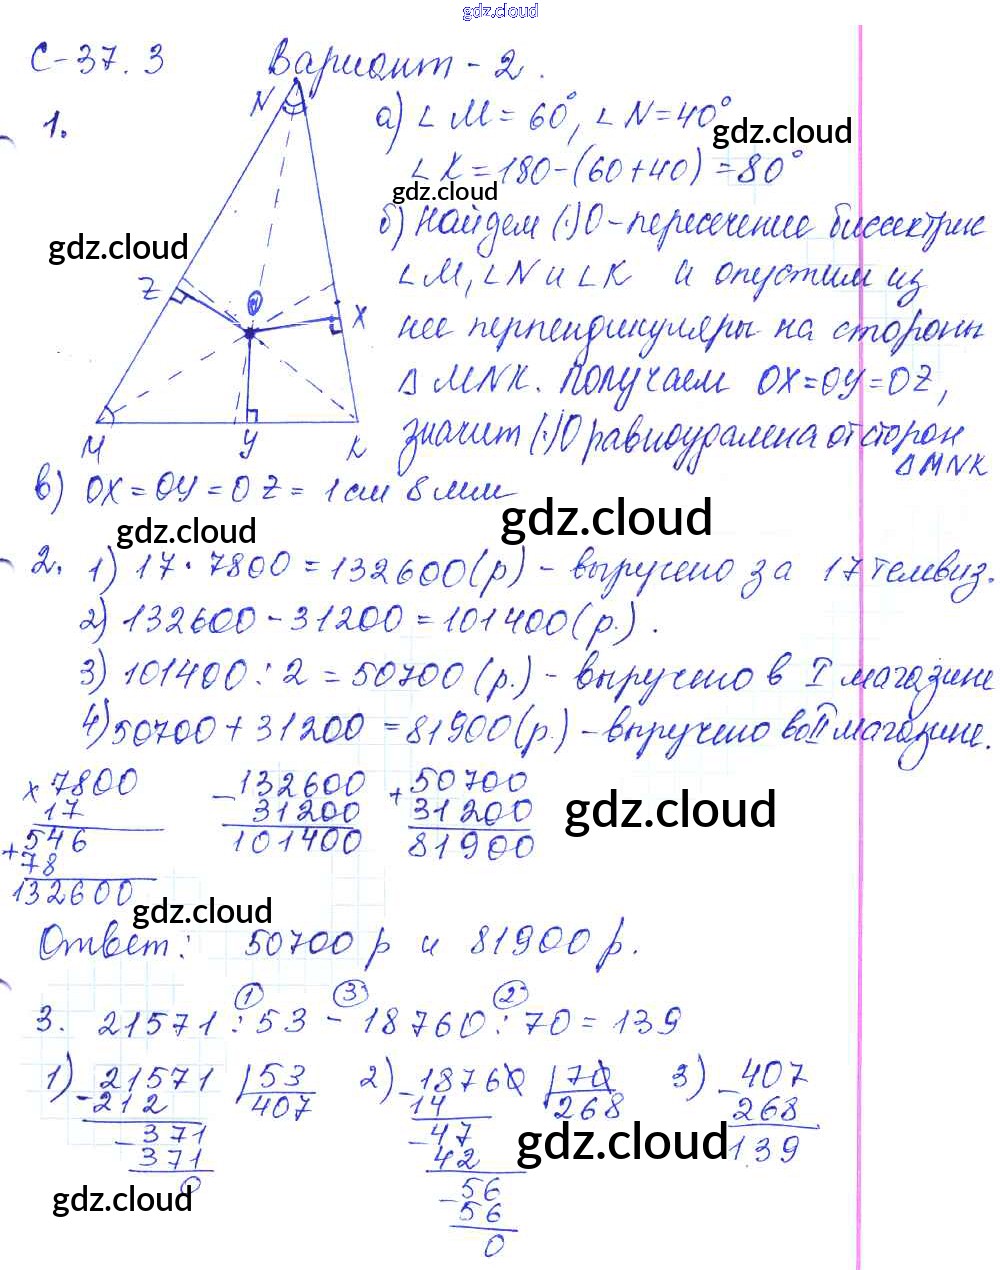 gdz.cloud
С-37.3 Вариант-2.
1.
N
Z
O
X
M
У
K
а) ∠M = 60°, ∠N = 40°
gdz.cloud
∠K = 180-(60+40) = 80°
gdz.cloud
б) Найдем (·)O-пересечение биссектрис
gdz.cloud
∠M, ∠N и ∠K и опустим из
нее перпендикуляры на стороны
△MNK. Получаем OX=OY=OZ,
значит (·)O равноудалена от сторон
△MNK
в) OX = OY = OZ = 1 см 8 мм
gdz.cloud
gdz.cloud
2. 1) 17·7800 = 132600 (р) - выручено за 17 телевиз.
2) 132600 - 31200 = 101400 (р.).
3) 101400 : 2 = 50700 (р.) - выручено в I магазине
4) 50700 + 31200 = 81900 (р.) - выручено во II магазине.
× 7800
17
+ 546
78
132600
- 132600
31200
101400
+ 50700
31200
81900
gdz.cloud
gdz.cloud
Ответ: 50700 р и 81900 р.
① ③ ②
3. 21571 : 53 - 18760 : 70 = 139
1) - 21571 | 53
212 407
- 371
371
0
2) - 18760 | 70
14 268
- 47
42
- 56
56
0
3) - 407
268
139
gdz.cloud
gdz.cloud